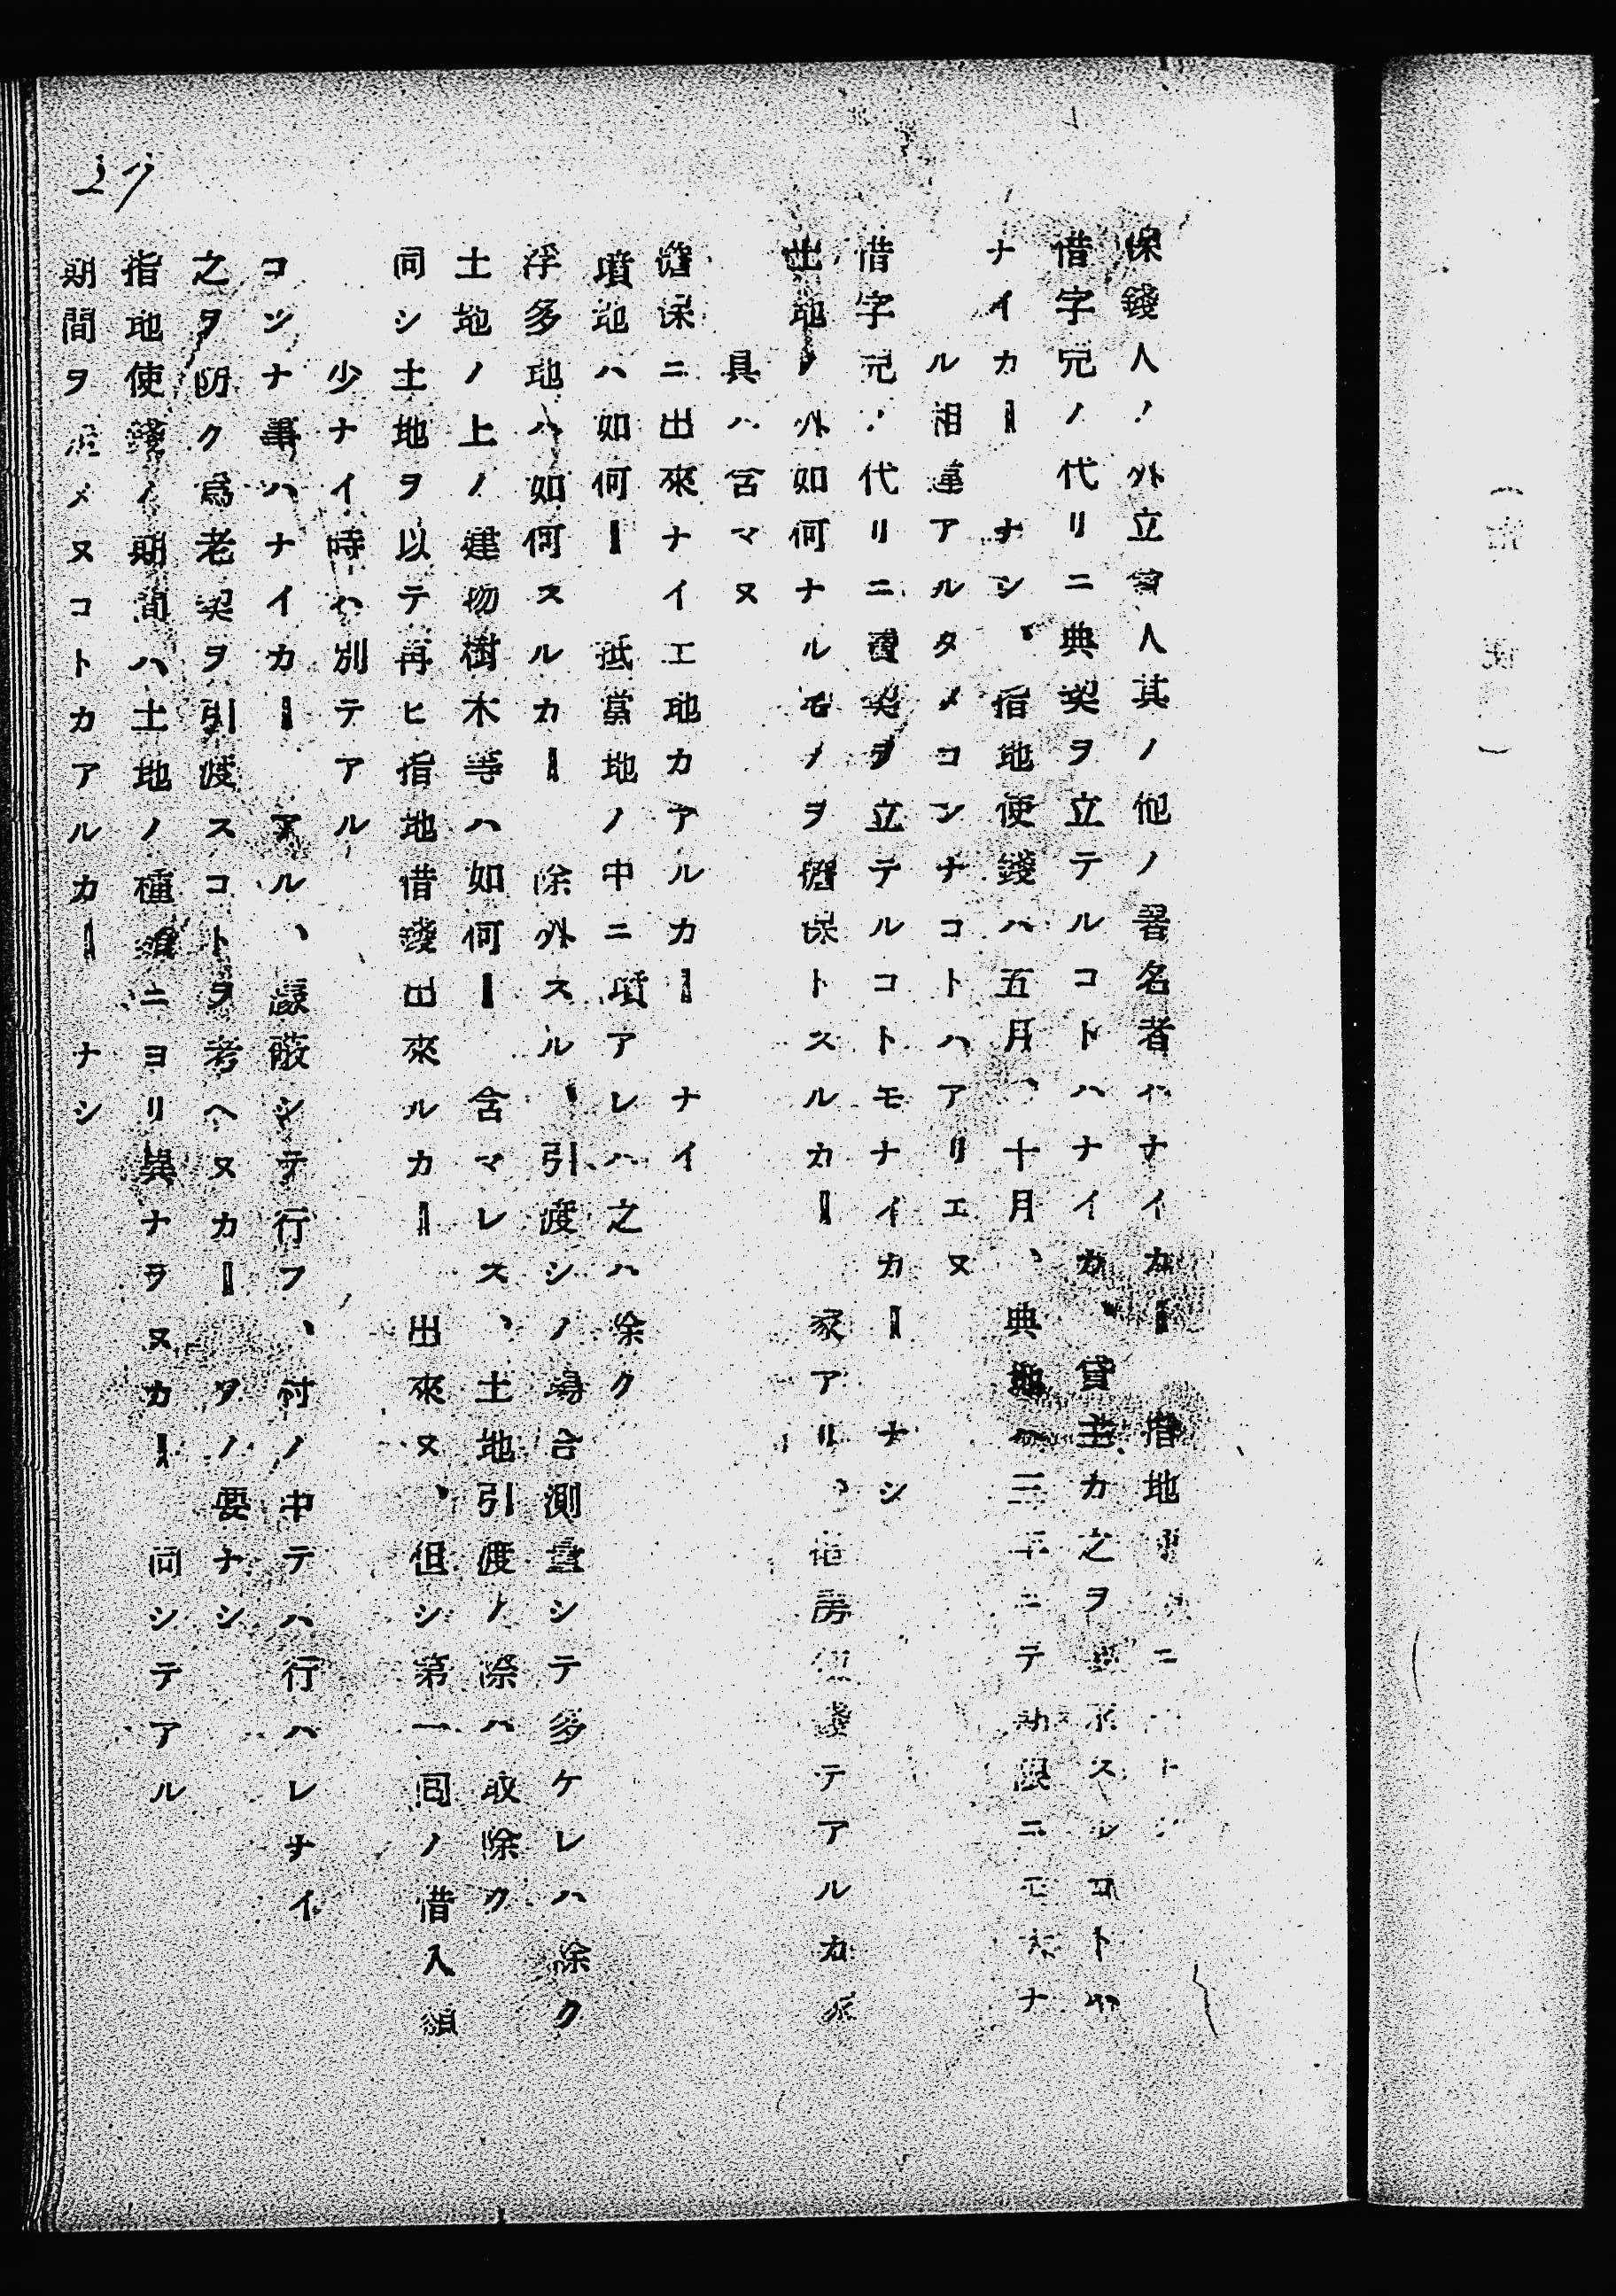 保錢人ノ外立會人其ノ他ノ署名者ハナイカー 指地
借字兄ノ代リニ典契ヲ立テルコトハナイカ、貸主カ之ヲ スルコトヤ
ナイカー ナシ、指地使錢ハ五月、十月、典地ハ三年ニテ 限ニ ナ
ル相違アルタメコンナコトハアリエヌ
借字兄ノ代リニ賣契ヲ立テルコトモナイカー ナシ
土地ノ外如何ナルモノヲ擔保トスルカー 家アル、 房 錢テアルカ
具ハ含マヌ
擔保ニ出來ナイエ地カアルカー ナイ
墳地ハ如何ー 抵當地ノ中ニ墳アレハ之ハ除ク
浮多地ハ如何スルカー 除外スル、引渡シノ場合測量シテ多ケレハ除ク
土地ノ上ノ建物樹木等ハ如何ー 含マレス、土地引渡ノ際ハ取除ク
同シ土地ヲ以テ再ヒ指地借錢出來ルカー 出來ヌ、但シ第一回ノ借入額
少ナイ時ハ別テアル
コンナ事ハナイカー アル、隠蔽シテ行フ、村ノ中テハ行ハレナイ
之ヲ防ク爲老契ヲ引渡スコトヲ考ヘヌカー ソノ要ナシ
指地使錢ノ期間ハ土地ノ種類ニヨリ異ナラヌカー 同シテアル
期間ヲ定メヌコトカアルカー ナシ
27